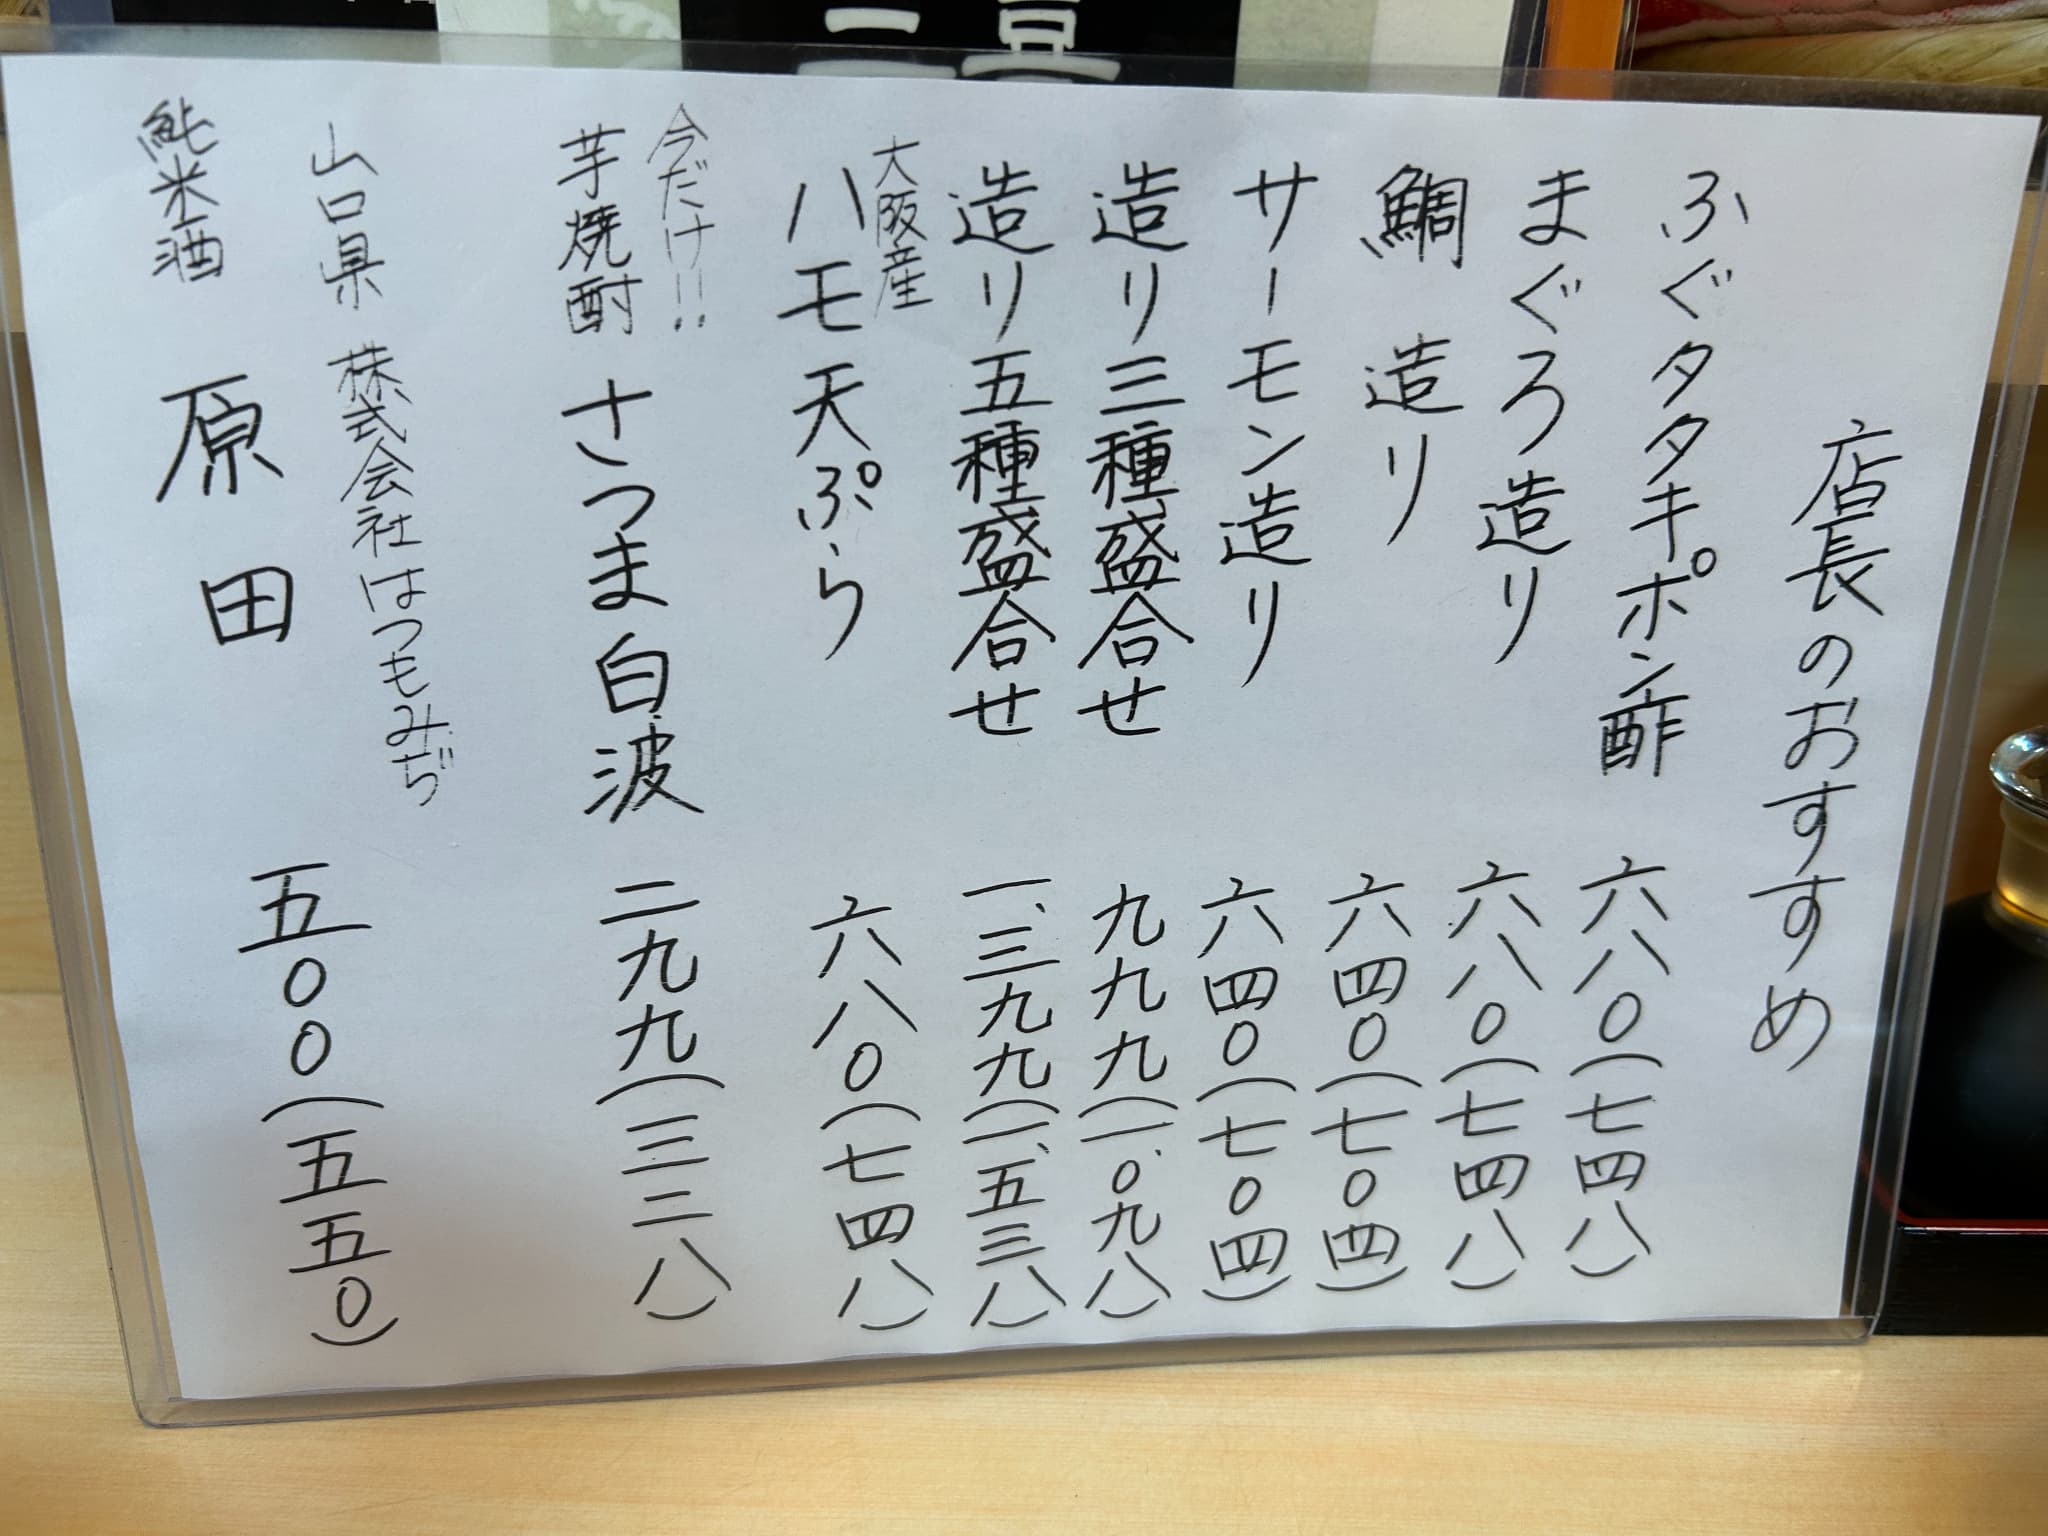 店長のおすすめ
ふぐタタキポン酢 六八〇(七四八)
まぐろ造り 六八〇(七四八)
鯛 造り 六四〇(七〇四)
サーモン造り 六四〇(七〇四)
造り三種盛合せ 九九九(一、〇九八)
造り五種盛合せ 一、三九九(一、五三八)
大阪産
ハモ天ぷら 六八〇(七四八)
今だけ!!
芋焼酎 さつま白波 二九九(三二八)
山口県 株式会社はつもみぢ
純米酒 原田 五〇〇(五五〇)